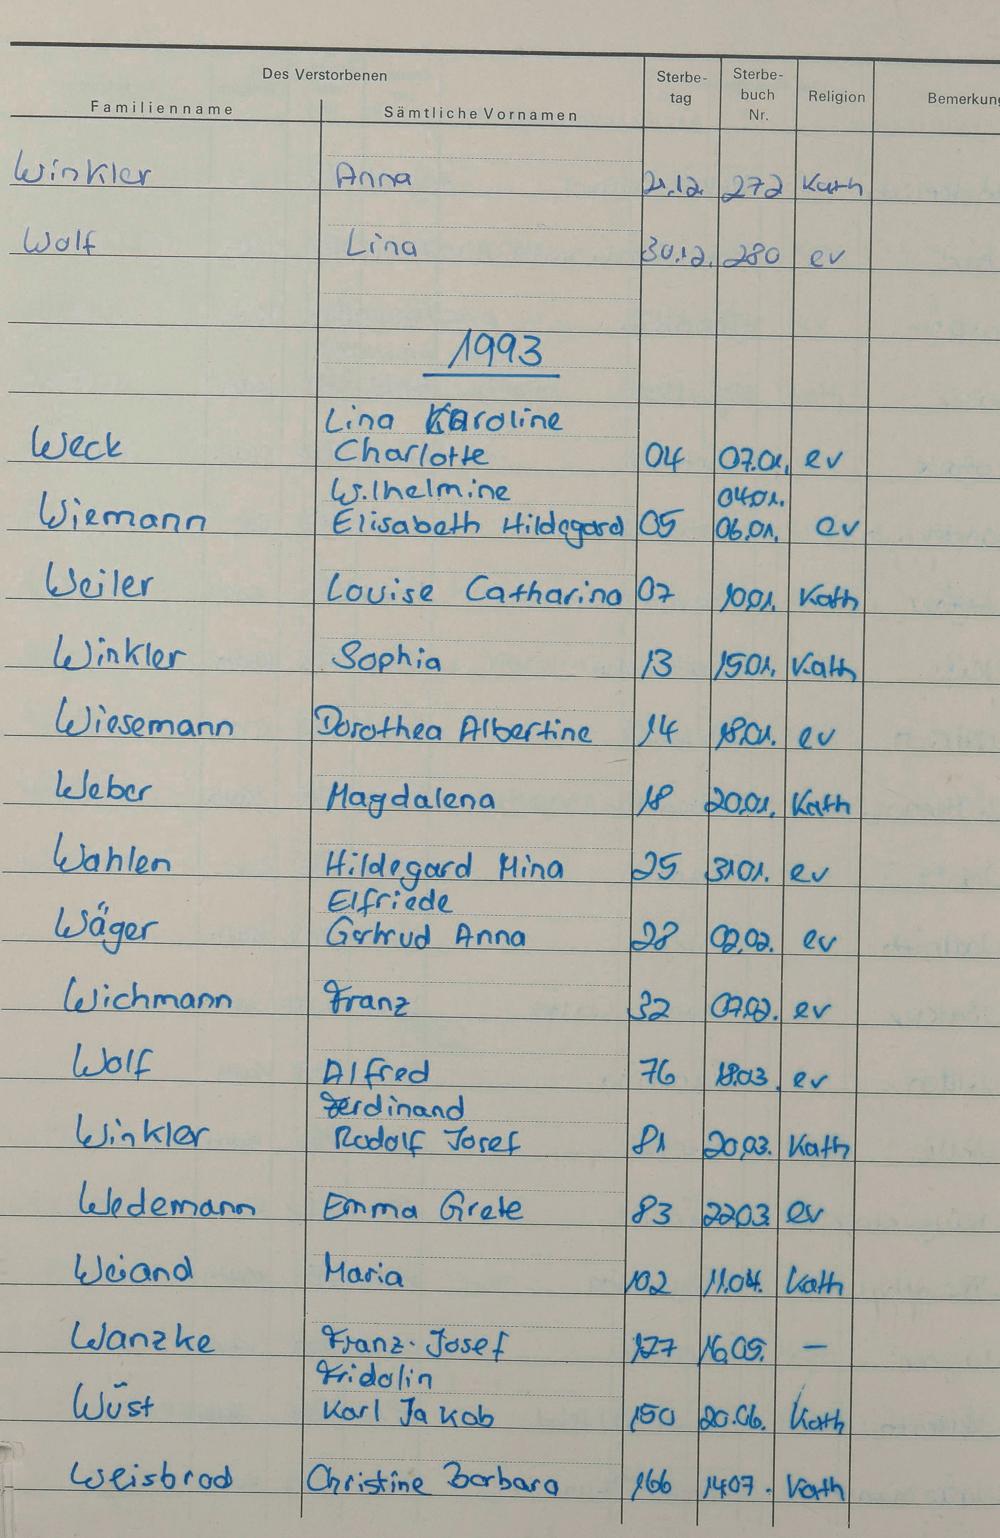 Des Verstorbenen
Familienname Sämtliche Vornamen Sterbe-tag Sterbe-buch Nr. Religion Bemerkung
Winkler Anna 21.12. 272 Kath
Wolf Lina 30.12. 280 ev
1993
Lina Karoline
Weck Charlotte 04 07.01. ev
Wilhelmine 04.01.
Wiemann Elisabeth Hildegard 05 06.01. ev
Weiler Louise Catharina 07 10.01. Kath
Winkler Sophia 13 15.01. Kath
Wiesemann Dorothea Albertine 14 18.01. ev
Weber Magdalena 18 20.01. Kath
Wahlen Hildegard Mina 25 31.01. ev
Elfriede
Wäger Gertrud Anna 28 02.02. ev
Wichmann Franz 32 07.02. ev
Wolf Alfred 76 18.03. ev
Ferdinand
Winkler Rudolf Josef 81 20.03. Kath
Wedemann Emma Grete 83 22.03. ev
Weiand Maria 102 11.04. Kath
Wanzke Franz-Josef 127 16.05. —
Fridolin
Wüst Karl Jakob 150 20.06. Kath
Weisbrod Christine Barbara 166 14.07. Kath